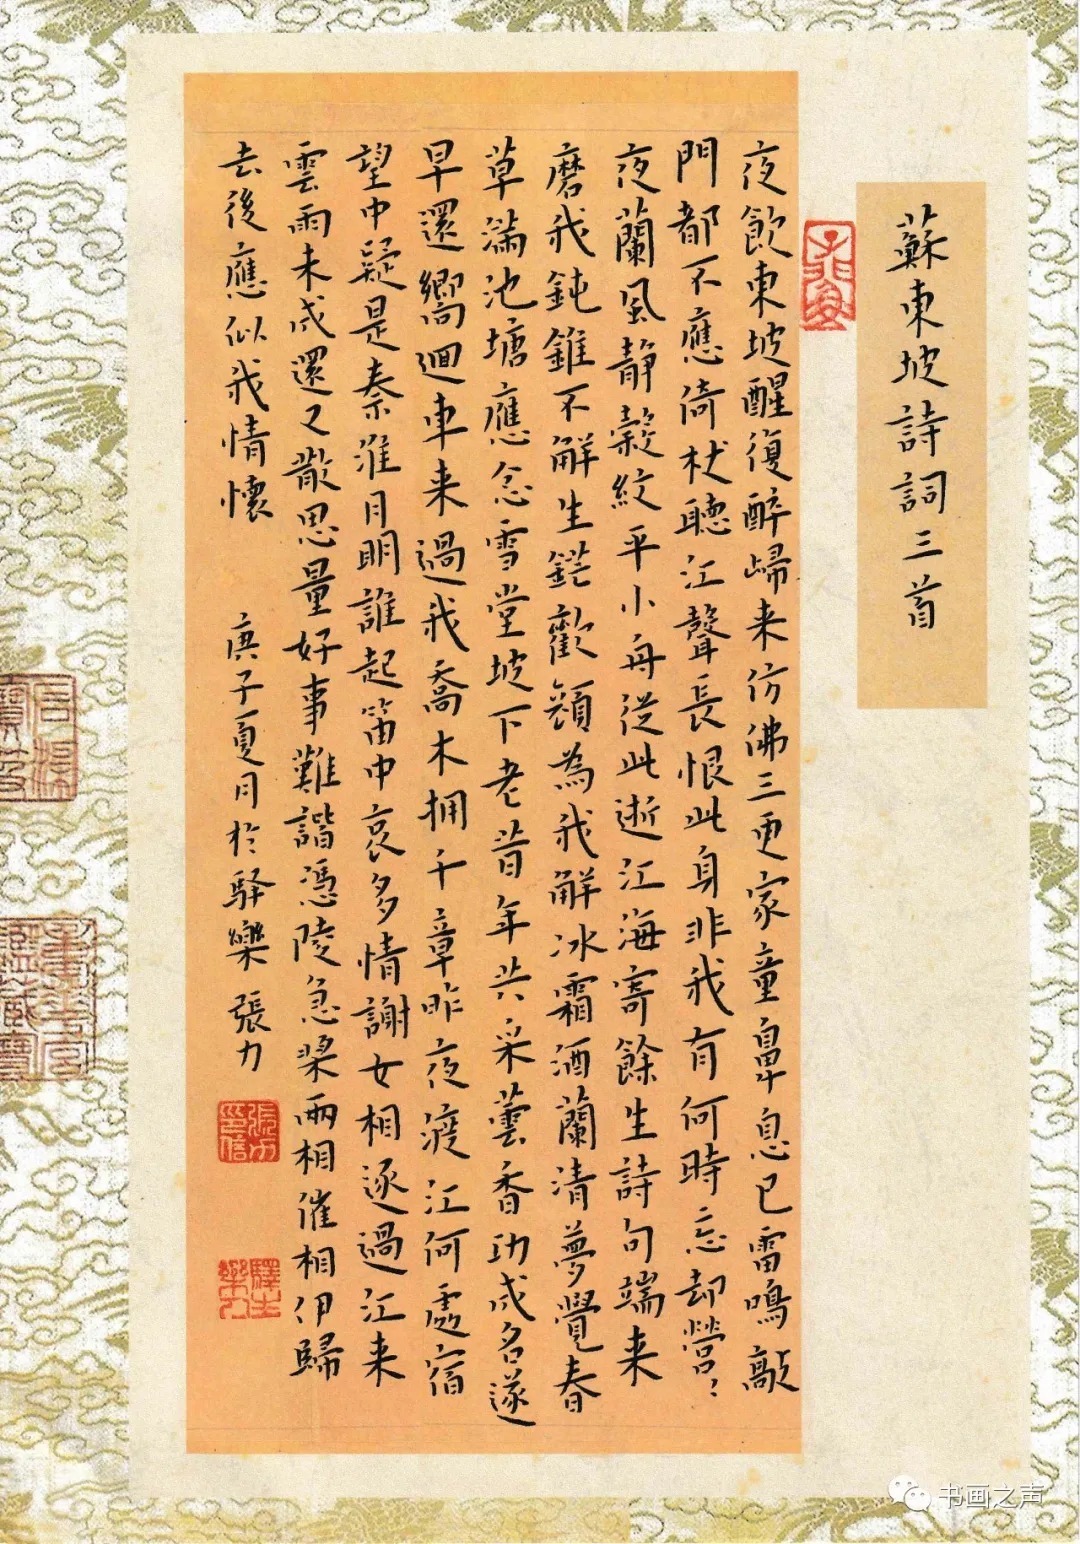 蘇東坡詩詞三首
夜飲東坡醒復醉歸来仿佛三更家童鼻息已雷鳴敲
門都不應倚杖聽江聲長恨此身非我有何時忘却營〻
夜蘭風静縠紋平小舟從此逝江海寄餘生詩句端来
磨我鈍錐不解生鋩歡顔為我解冰霜酒蘭清夢覺春
草滿池塘應念雪堂坡下老昔年共采蕓香功成名遂
早還鄉迴車来過我喬木拥千章昨夜渡江何處宿
望中疑是秦淮月明誰起笛中哀多情謝女相逐過江来
雲雨未成還又散思量好事難諧憑陵急槳兩相催相伊歸
去後應似我情懷
庚子夏月於驿樂 張力
张力
印信
书画之声